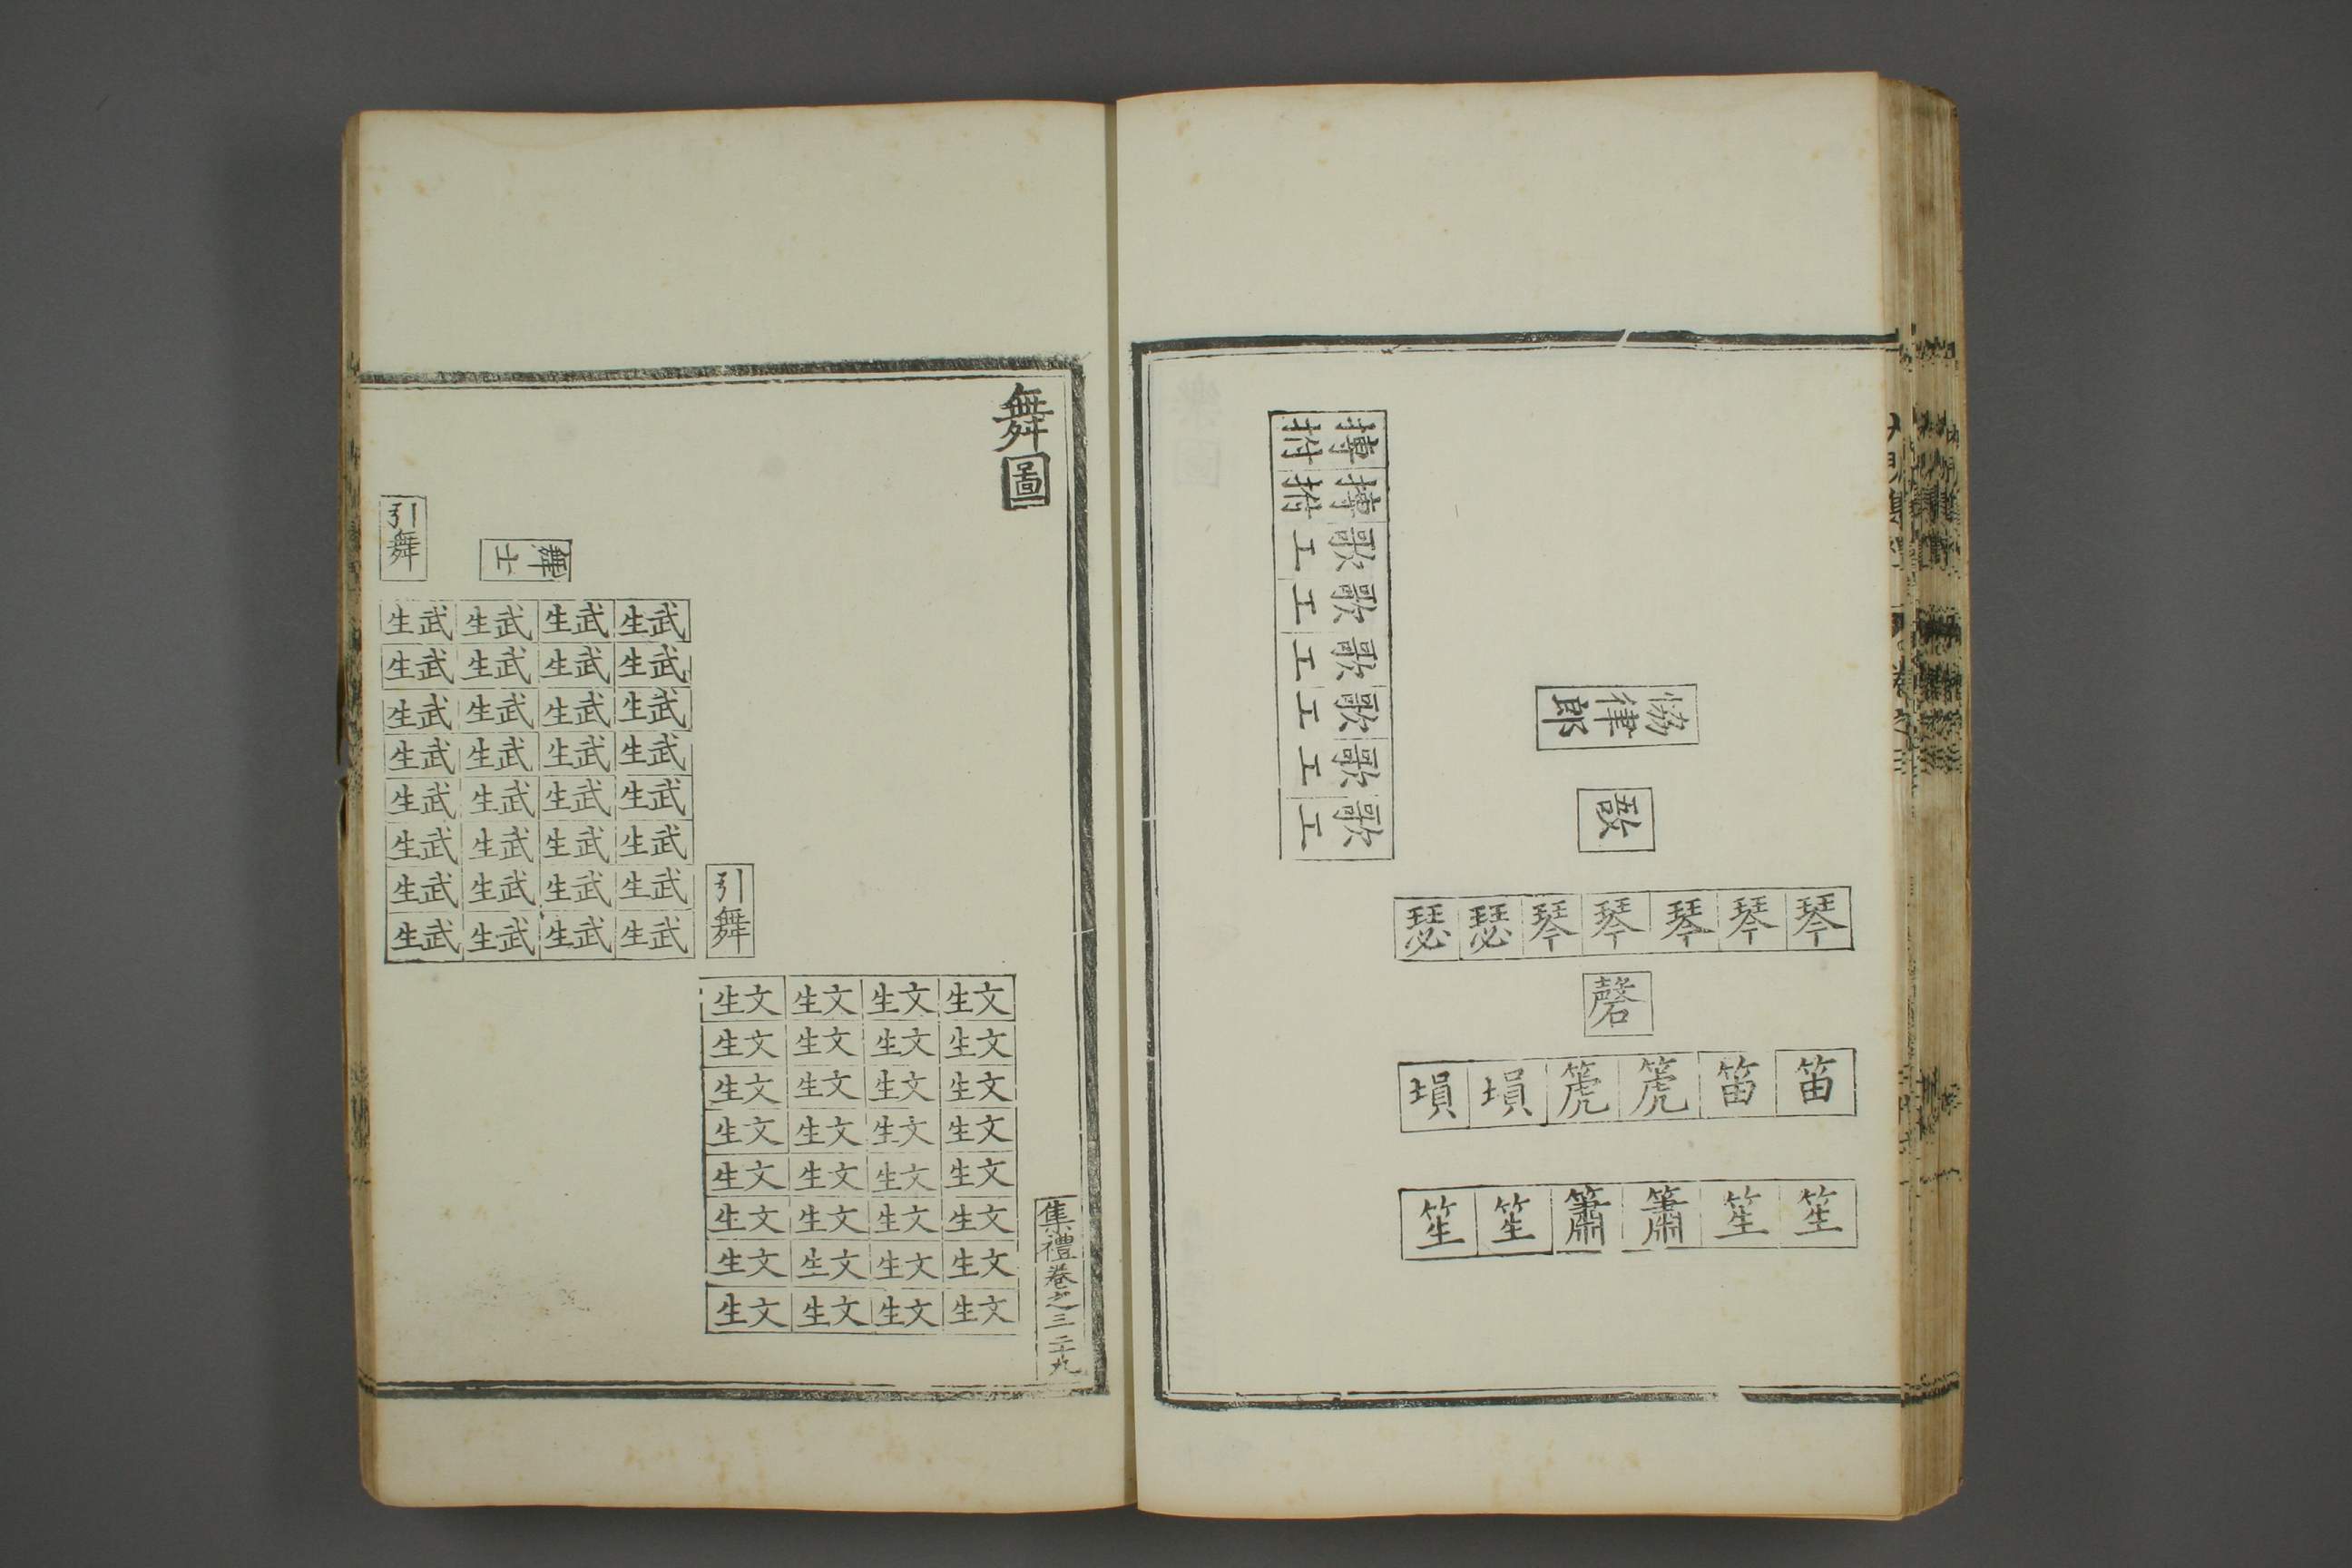 恊律郎
敔
琴琴琴琴琴瑟瑟
磬
笛笛箎箎塤塤
笙笙簫簫笙笙
搏拊
搏拊
歌工
歌工
歌工
歌工
歌工
歌工
舞圖
集禮卷之三 二十九
引舞
舞士
武生 武生 武生 武生
武生 武生 武生 武生
武生 武生 武生 武生
武生 武生 武生 武生
武生 武生 武生 武生
武生 武生 武生 武生
武生 武生 武生 武生
武生 武生 武生 武生
引舞
文生 文生 文生 文生
文生 文生 文生 文生
文生 文生 文生 文生
文生 文生 文生 文生
文生 文生 文生 文生
文生 文生 文生 文生
文生 文生 文生 文生
文生 文生 文生 文生